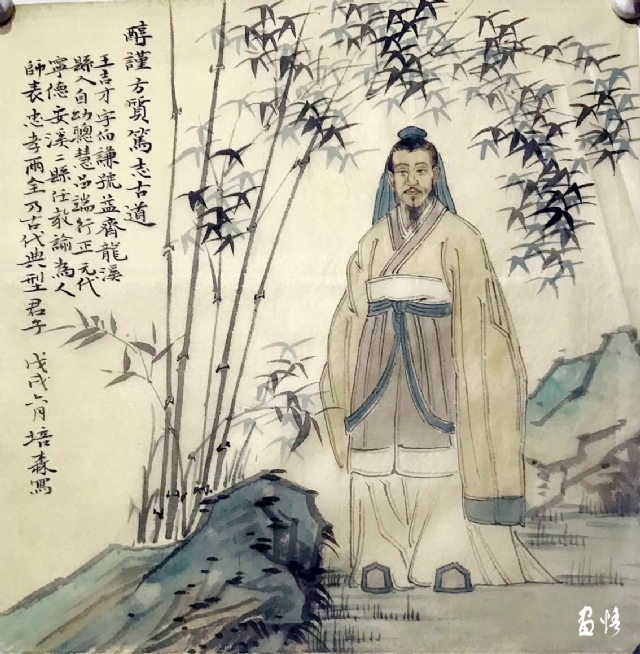 醇謹方質篤志古道
王吉才字伯謙號益齊龍溪
縣人自幼聰慧品端行正元代
寧德安溪二縣任教諭為人
師表忠孝兩全乃古代典型君子 戊戌六月培森寫